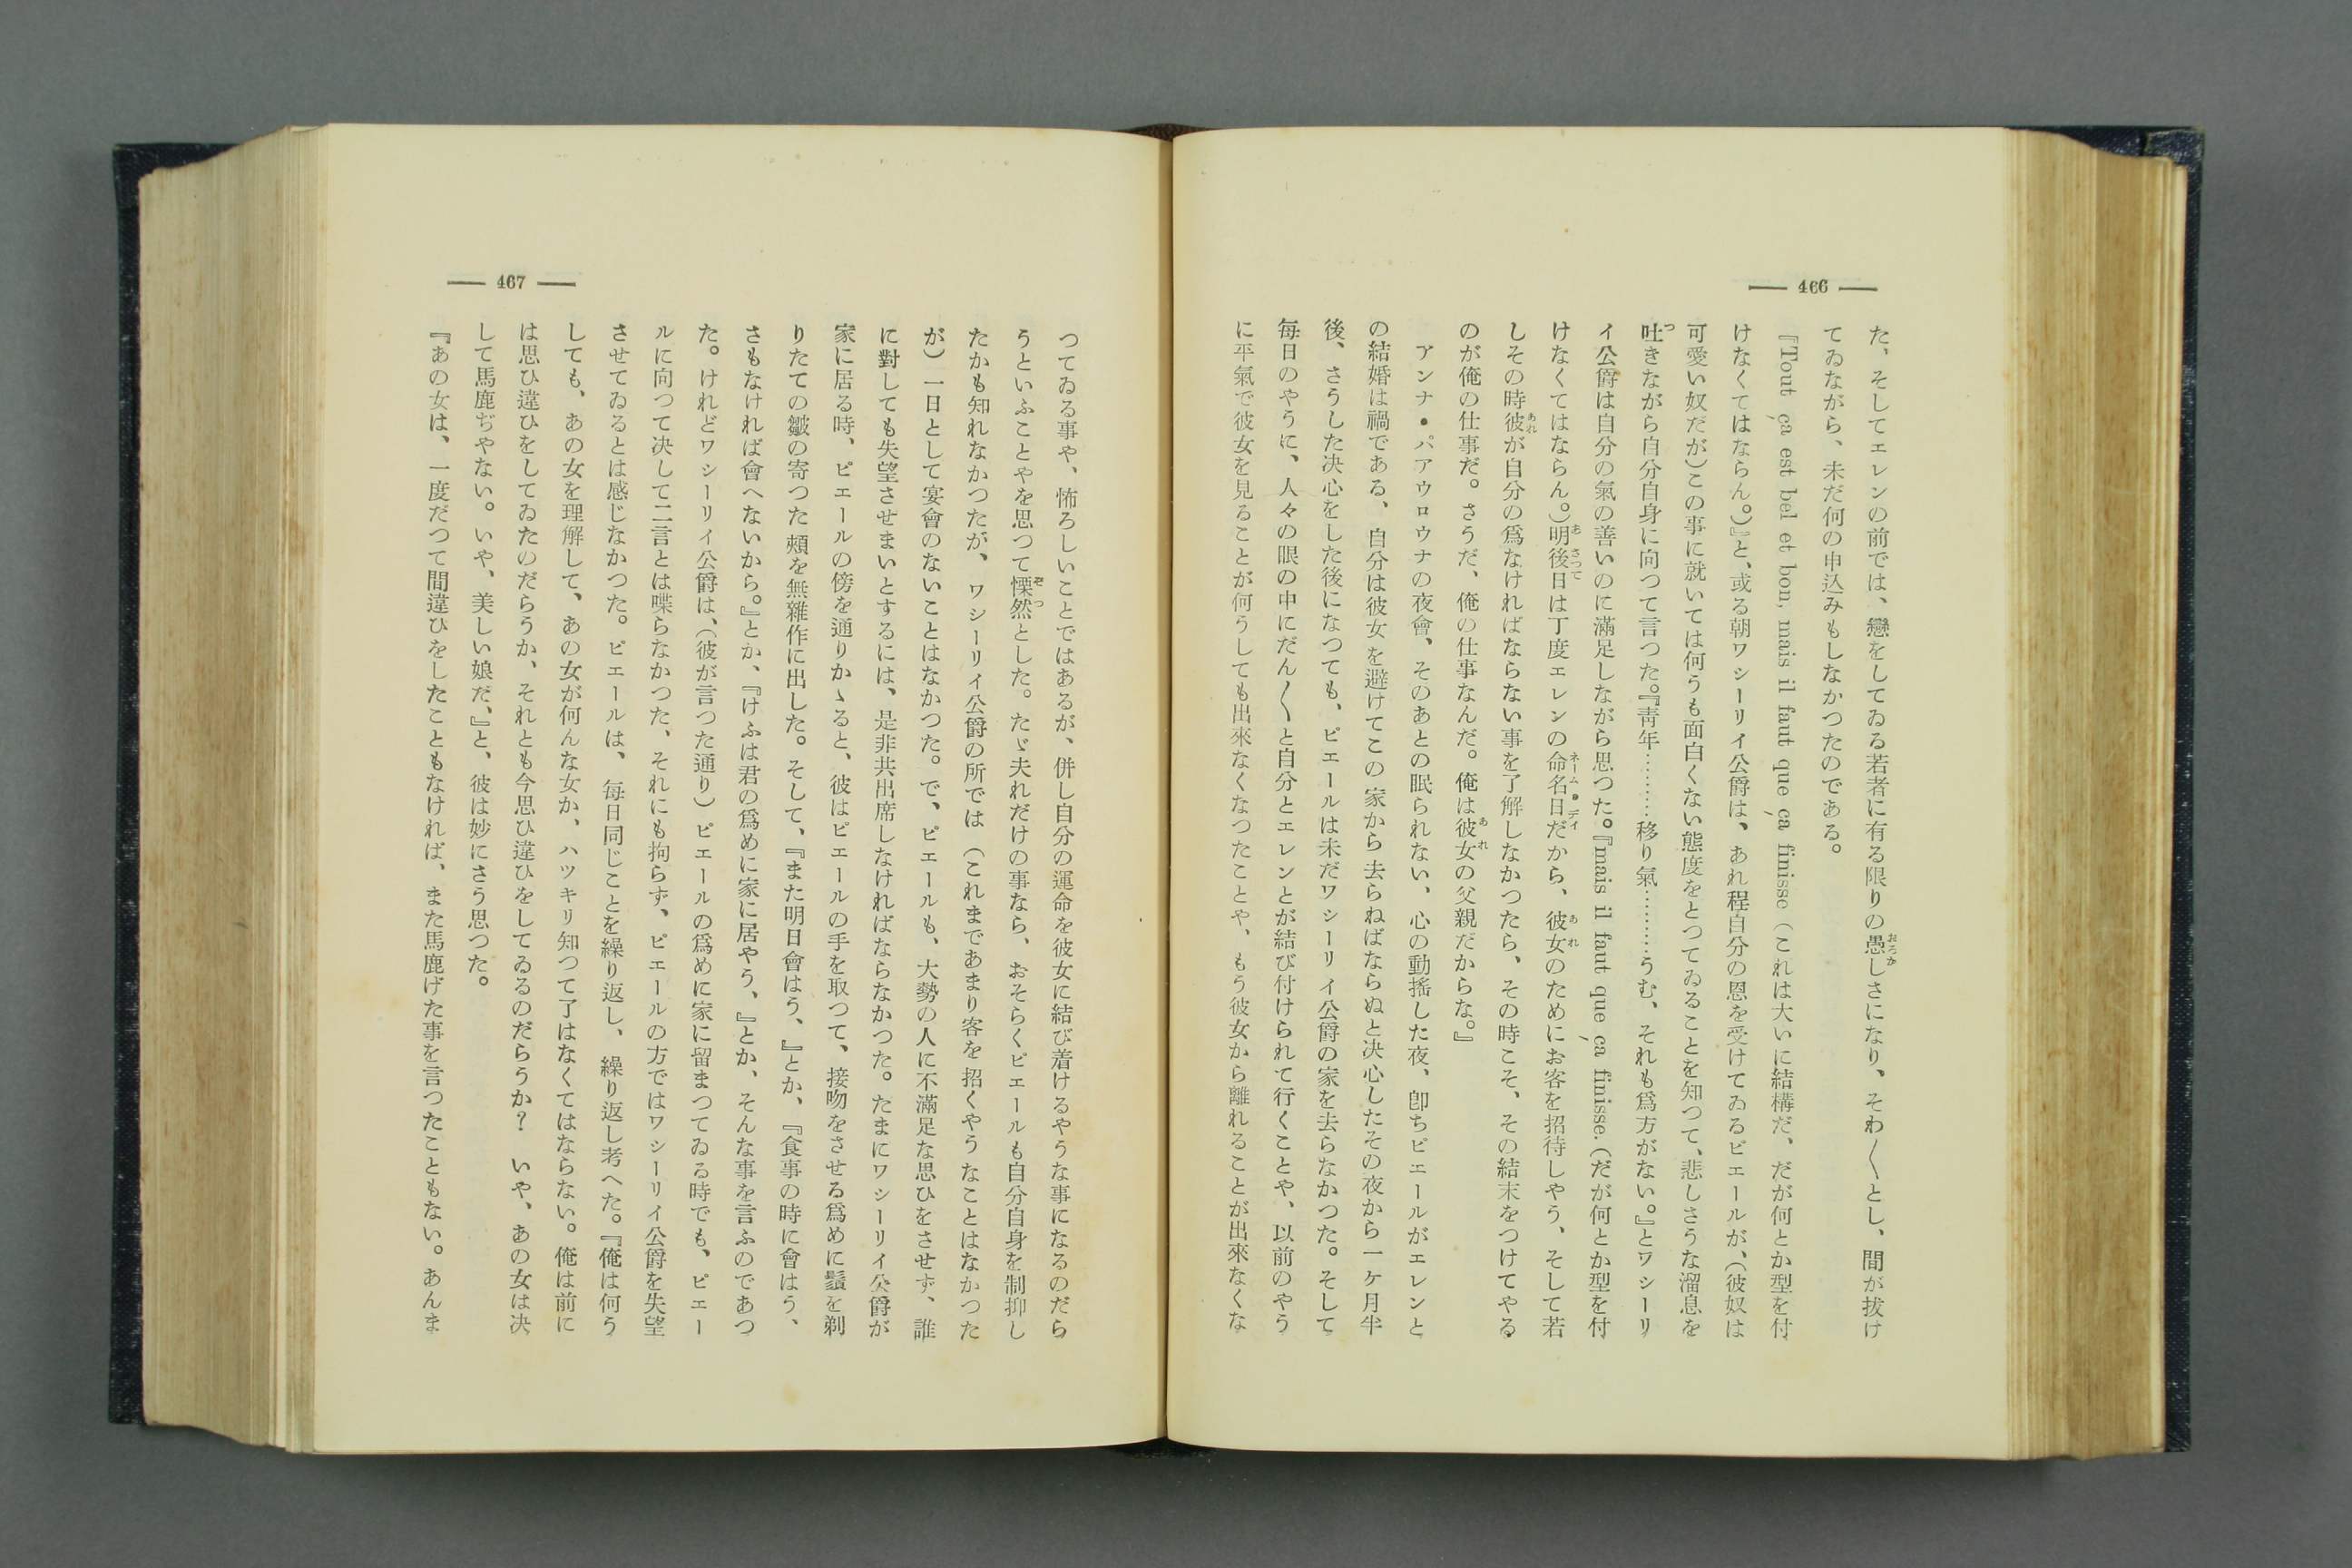 — 466 —
た、そしてエレンの前では、戀をしてゐる若者に有る限りの愚しさになり、そわ〳〵とし、間が拔け
てゐながら、未だ何の申込みもしなかつたのである。
『Tout ça est bel et bon, mais il faut que ça finisse（これは大いに結構だ、だが何とか型を付
けなくてはならん。）』と、或る朝ワシーリイ公爵は、あれ程自分の恩を受けてゐるピエールが、（彼奴は
可愛い奴だが）この事に就いては何うも面白くない態度をとつてゐることを知つて、悲しさうな溜息を
吐きながら自分自身に向つて言つた。『靑年…………移り氣…………うむ、それも爲方がない。』とワシーリ
イ公爵は自分の氣の善いのに滿足しながら思つた。『mais il faut que ça finisse.（だが何とか型を付
けなくてはならん。）明後日は丁度エレンの命名日だから、彼女のためにお客を招待しやう、そして若
しその時彼が自分の爲なければならない事を了解しなかつたら、その時こそ、その結末をつけてやる
のが俺の仕事だ。さうだ、俺の仕事なんだ。俺は彼女の父親だからな。』
アンナ・パアウロウナの夜會、そのあとの眠られない、心の動搖した夜、卽ちピエールがエレンと
の結婚は禍である、自分は彼女を避けてこの家から去らねばならぬと決心したその夜から一ケ月半
後、さうした決心をした後になつても、ピエールは未だワシーリイ公爵の家を去らなかつた。そして
每日のやうに、人々の眼の中にだん〳〵と自分とエレンとが結び付けられて行くことや、以前のやう
に平氣で彼女を見ることが何うしても出來なくなつたことや、もう彼女から離れることが出來なくな
— 467 —
つてゐる事や、怖ろしいことではあるが、併し自分の運命を彼女に結び着けるやうな事になるのだら
うといふことやを思つて慄然とした。たゞ夫れだけの事なら、おそらくピエールも自分自身を制抑し
たかも知れなかつたが、ワシーリイ公爵の所では（これまであまり客を招くやうなことはなかつた
が）一日として宴會のないことはなかつた。で、ピエールも、大勢の人に不滿足な思ひをさせず、誰
に對しても失望させまいとするには、是非共出席しなければならなかつた。たまにワシーリイ公爵が
家に居る時、ピエールの傍を通りかゝると、彼はピエールの手を取つて、接吻をさせる爲めに鬚を剃
りたての皺の寄つた頰を無雜作に出した。そして、『また明日會はう、』とか、『食事の時に會はう、
さもなければ會へないから。』とか、『けふは君の爲めに家に居やう、』とか、そんな事を言ふのであつ
た。けれどワシーリイ公爵は、（彼が言つた通り）ピエールの爲めに家に留まつてゐる時でも、ピエー
ルに向つて決して二言とは喋らなかつた、それにも拘らず、ピエールの方ではワシーリイ公爵を失望
させてゐるとは感じなかつた。ピエールは、每日同じことを繰り返し、繰り返し考へた。『俺は何う
しても、あの女を理解して、あの女が何んな女か、ハツキリ知つて了はなくてはならない。俺は前に
は思ひ違ひをしてゐたのだらうか、それとも今思ひ違ひをしてゐるのだらうか？　いや、あの女は決
して馬鹿ぢやない。いや、美しい娘だ、』と、彼は妙にさう思つた。
『あの女は、一度だつて間違ひをしたこともなければ、また馬鹿げた事を言つたこともない。あんま